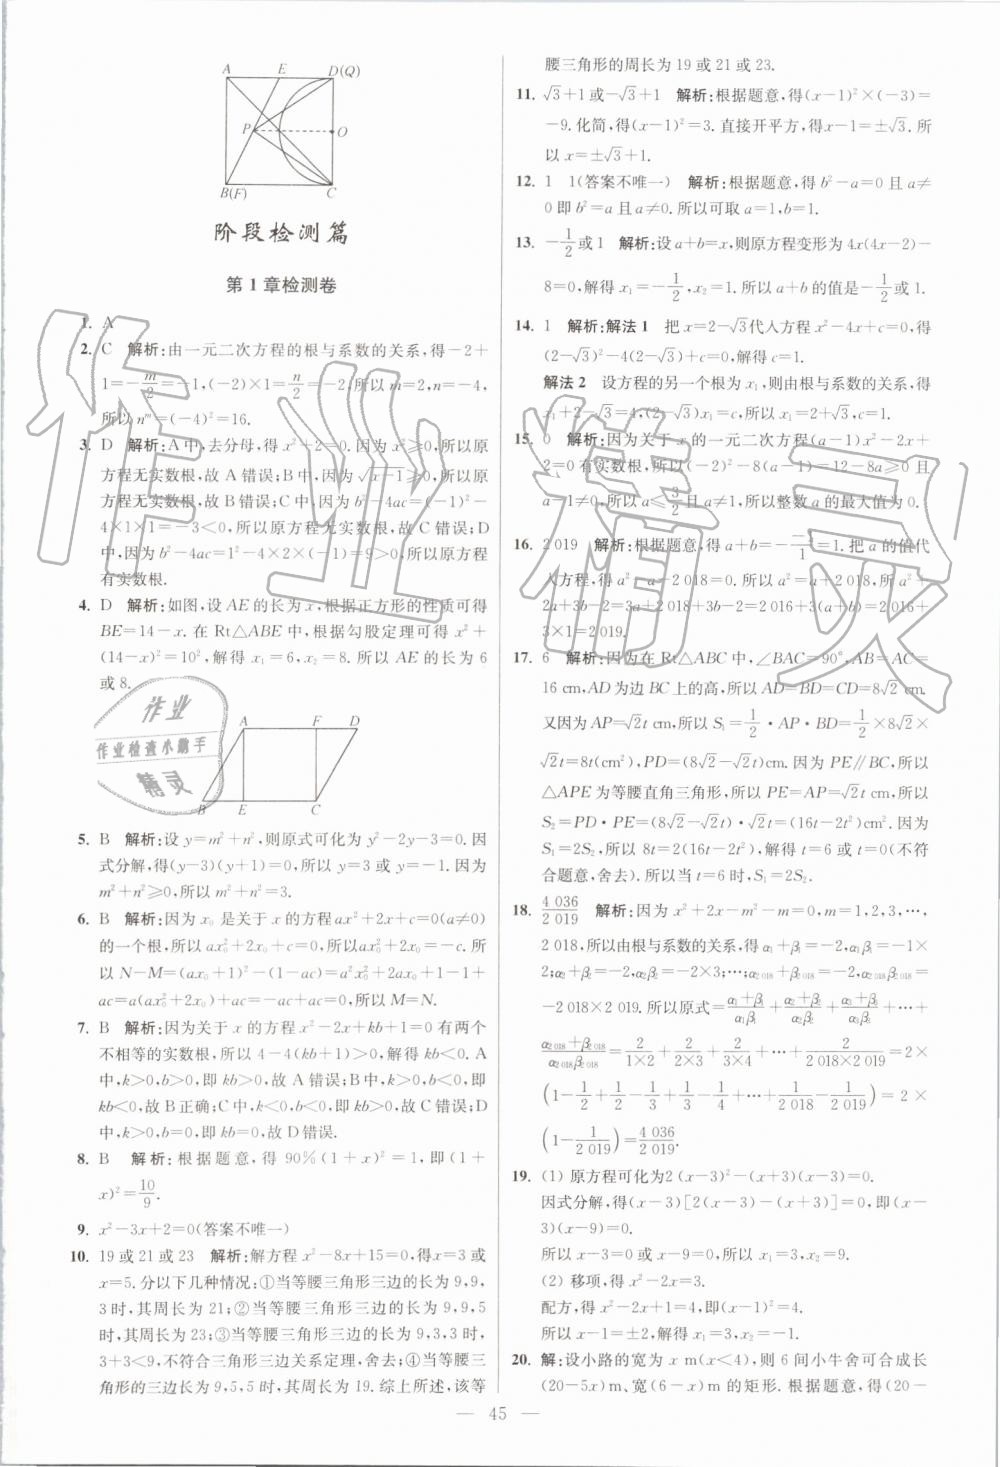 A E D(Q)
P O
B(F) C
阶段检测篇
第1章检测卷
1. A
2. C 解析:由一元二次方程的根与系数的关系,得-2+
1=-m/2=-1,(-2)×1=n/2=-2,所以m=2,n=-4,
所以n^m=(-4)²=16.
3. D 解析:A中,去分母,得x²+2=0.因为x²≥0,所以原
方程无实数根,故A错误;B中,因为√(x-1)≥0,所以原
方程无实数根,故B错误;C中,因为b²-4ac=(-1)²-
4×1×1=-3<0,所以原方程无实数根,故C错误;D
中,因为b²-4ac=1²-4×2×(-1)=9>0,所以原方程
有实数根.
4. D 解析:如图,设AE的长为x,根据正方形的性质可得
BE=14-x.在Rt△ABE中,根据勾股定理可得x²+
(14-x)²=10²,解得x₁=6,x₂=8.所以AE的长为6
或8.
A F D
B E C
5. B 解析:设y=m²+n²,则原式可化为y²-2y-3=0.因
式分解,得(y-3)(y+1)=0,所以y=3或y=-1.因为
m²+n²≥0,所以m²+n²=3.
6. B 解析:因为x₀是关于x的方程ax²+2x+c=0(a≠0)
的一个根,所以ax₀²+2x₀+c=0,所以ax₀²+2x₀=-c.所
以N-M=(ax₀+1)²-(1-ac)=a²x₀²+2ax₀+1-1+
ac=a(ax₀²+2x₀)+ac=-ac+ac=0,所以M=N.
7. B 解析:因为关于x的方程x²-2x+kb+1=0有两个
不相等的实数根,所以4-4(kb+1)>0,解得kb<0.A
中,k>0,b>0,即kb>0,故A错误;B中,k>0,b<0,即
kb<0,故B正确;C中,k<0,b<0,即kb>0,故C错误;D
中,k>0,b=0,即kb=0,故D错误.
8. B 解析:根据题意,得90%(1+x)²=1,即(1+
x)²=10/9.
9. x²-3x+2=0(答案不唯一)
10. 19或21或23 解析:解方程x²-8x+15=0,得x=3或
x=5.分以下几种情况:①当等腰三角形三边的长为9,9,
3时,其周长为21;②当等腰三角形三边的长为9,9,5
时,其周长为23;③当等腰三角形三边的长为9,3,3时,
3+3<9,不符合三角形三边关系定理,舍去;④当等腰三
角形的三边长为9,5,5时,其周长为19.综上所述,该等
腰三角形的周长为19或21或23.
11. √3+1或-√3+1 解析:根据题意,得(x-1)²×(-3)=
-9.化简,得(x-1)²=3.直接开平方,得x-1=±√3.所
以x=±√3+1.
12. 1 1(答案不唯一) 解析:根据题意,得b²-a=0且a≠
0即b²=a且a≠0.所以可取a=1,b=1.
13. -1/2或1 解析:设a+b=x,则原方程变形为4x(4x-2)-
8=0,解得x₁=-1/2,x₂=1.所以a+b的值是-1/2或1.
14. 1 解析:解法1 把x=2-√3代入方程x²-4x+c=0,得
(2-√3)²-4(2-√3)+c=0,解得c=1.
解法2 设方程的另一个根为x₁,则由根与系数的关系,得
x₁+2-√3=4,(2-√3)x₁=c,所以x₁=2+√3,c=1.
15. 0 解析:因为关于x的一元二次方程(a-1)x²-2x+
2=0有实数根,所以(-2)²-8(a-1)=12-8a≥0且
a-1≠0,所以a≤3/2且a≠1,所以整数a的最大值为0.
16. 2 019 解析:根据题意,得a+b=-(-1)/1=1.把a的值代
入方程,得a²-a-2 018=0.所以a²=a+2 018,所a²+
2a+3b-2=3a+2 018+3b-2=2 016+3(a+b)=2 016+
3×1=2 019.
17. 6 解析:因为在Rt△ABC中,∠BAC=90°,AB=AC=
16 cm,AD为边BC上的高,所以AD=BD=CD=8√2 cm.
又因为AP=√2t cm,所以S₁=1/2·AP·BD=1/2×8√2×
√2t=8t(cm²),PD=(8√2-√2t)cm.因为PE∥BC,所以
△APE为等腰直角三角形,所以PE=AP=√2t cm,所以
S₂=PD·PE=(8√2-√2t)·√2t=(16t-2t²)cm².因为
S₁=2S₂,所以8t=2(16t-2t²),解得t=6或t=0(不符
合题意,舍去).所以当t=6时,S₁=2S₂.
18. 4 036/2 019 解析:因为x²+2x-m²-m=0,m=1,2,3,…,
2 018,所以由根与系数的关系,得α₁+β₁=-2,α₁β₁=-1×
2;α₂+β₂=-2,α₂β₂=-2×3;…;α₂₀₁₈+β₂₀₁₈=-2,α₂₀₁₈β₂₀₁₈=
-2 018×2 019.所以原式=(α₁+β₁)/(α₁β₁)+(α₂+β₂)/(α₂β₂)+(α₃+β₃)/(α₃β₃)+…+
(α₂₀₁₈+β₂₀₁₈)/(α₂₀₁₈β₂₀₁₈)=2/(1×2)+2/(2×3)+2/(3×4)+…+2/(2 018×2 019)=2×
(1-1/2+1/2-1/3+1/3-1/4+…+1/2 018-1/2 019)=2×
(1-1/2 019)=4 036/2 019.
19. (1) 原方程可化为2(x-3)²-(x+3)(x-3)=0.
因式分解,得(x-3)[2(x-3)-(x+3)]=0,即(x-
3)(x-9)=0.
所以x-3=0或x-9=0,所以x₁=3,x₂=9.
(2) 移项,得x²-2x=3.
配方,得x²-2x+1=4,即(x-1)²=4.
所以x-1=±2,解得x₁=3,x₂=-1.
20. 解:设小路的宽为x m(x<4),则6间小牛舍可合成长
(20-5x)m、宽(6-x)m的矩形.根据题意,得(20-
— 45 —
作业精灵
作业
作业检查小助手
精灵